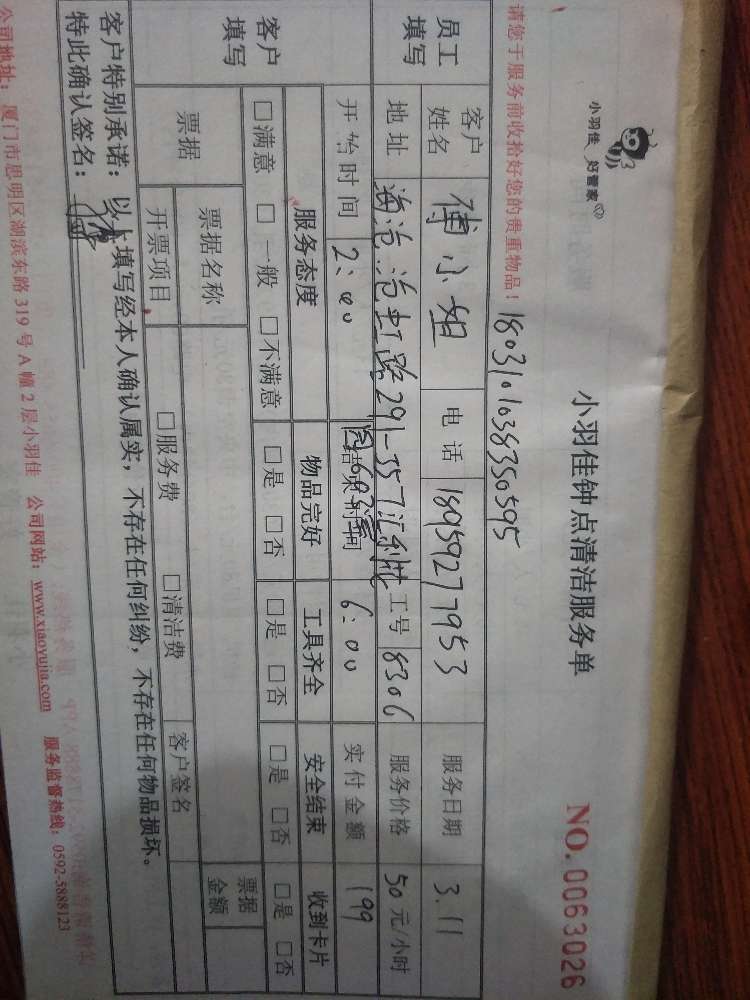 小羽佳 好管家
小羽佳钟点清洁服务单
NO. 0063026
请您于服务前收拾好您的贵重物品！
1803101038350595
员工填写 客户姓名 傅小姐 电话 18959277953 服务日期 3.11
地址 海沧沧虹路291-357汇利花 工号 8306 服务价格 50元/小时
开始时间 2:00 结束时间 6:00 实付金额 199
客户填写 服务态度 物品完好 工具齐全 安全结束 收到卡片
□满意 □一般 □不满意 □是 □否 □是 □否 □是 □否 □是 □否
票据 票据名称 票据金额
开票项目 □服务费 □清洁费 客户签名
客户特别承诺：以上填写经本人确认属实，不存在任何纠纷，不存在任何物品损坏。
特此确认签名：
公司地址：厦门市思明区湖滨东路319号A幢2层小羽佳 公司网站：www.xiaoyujia.com 服务监督热线：0592-5888123